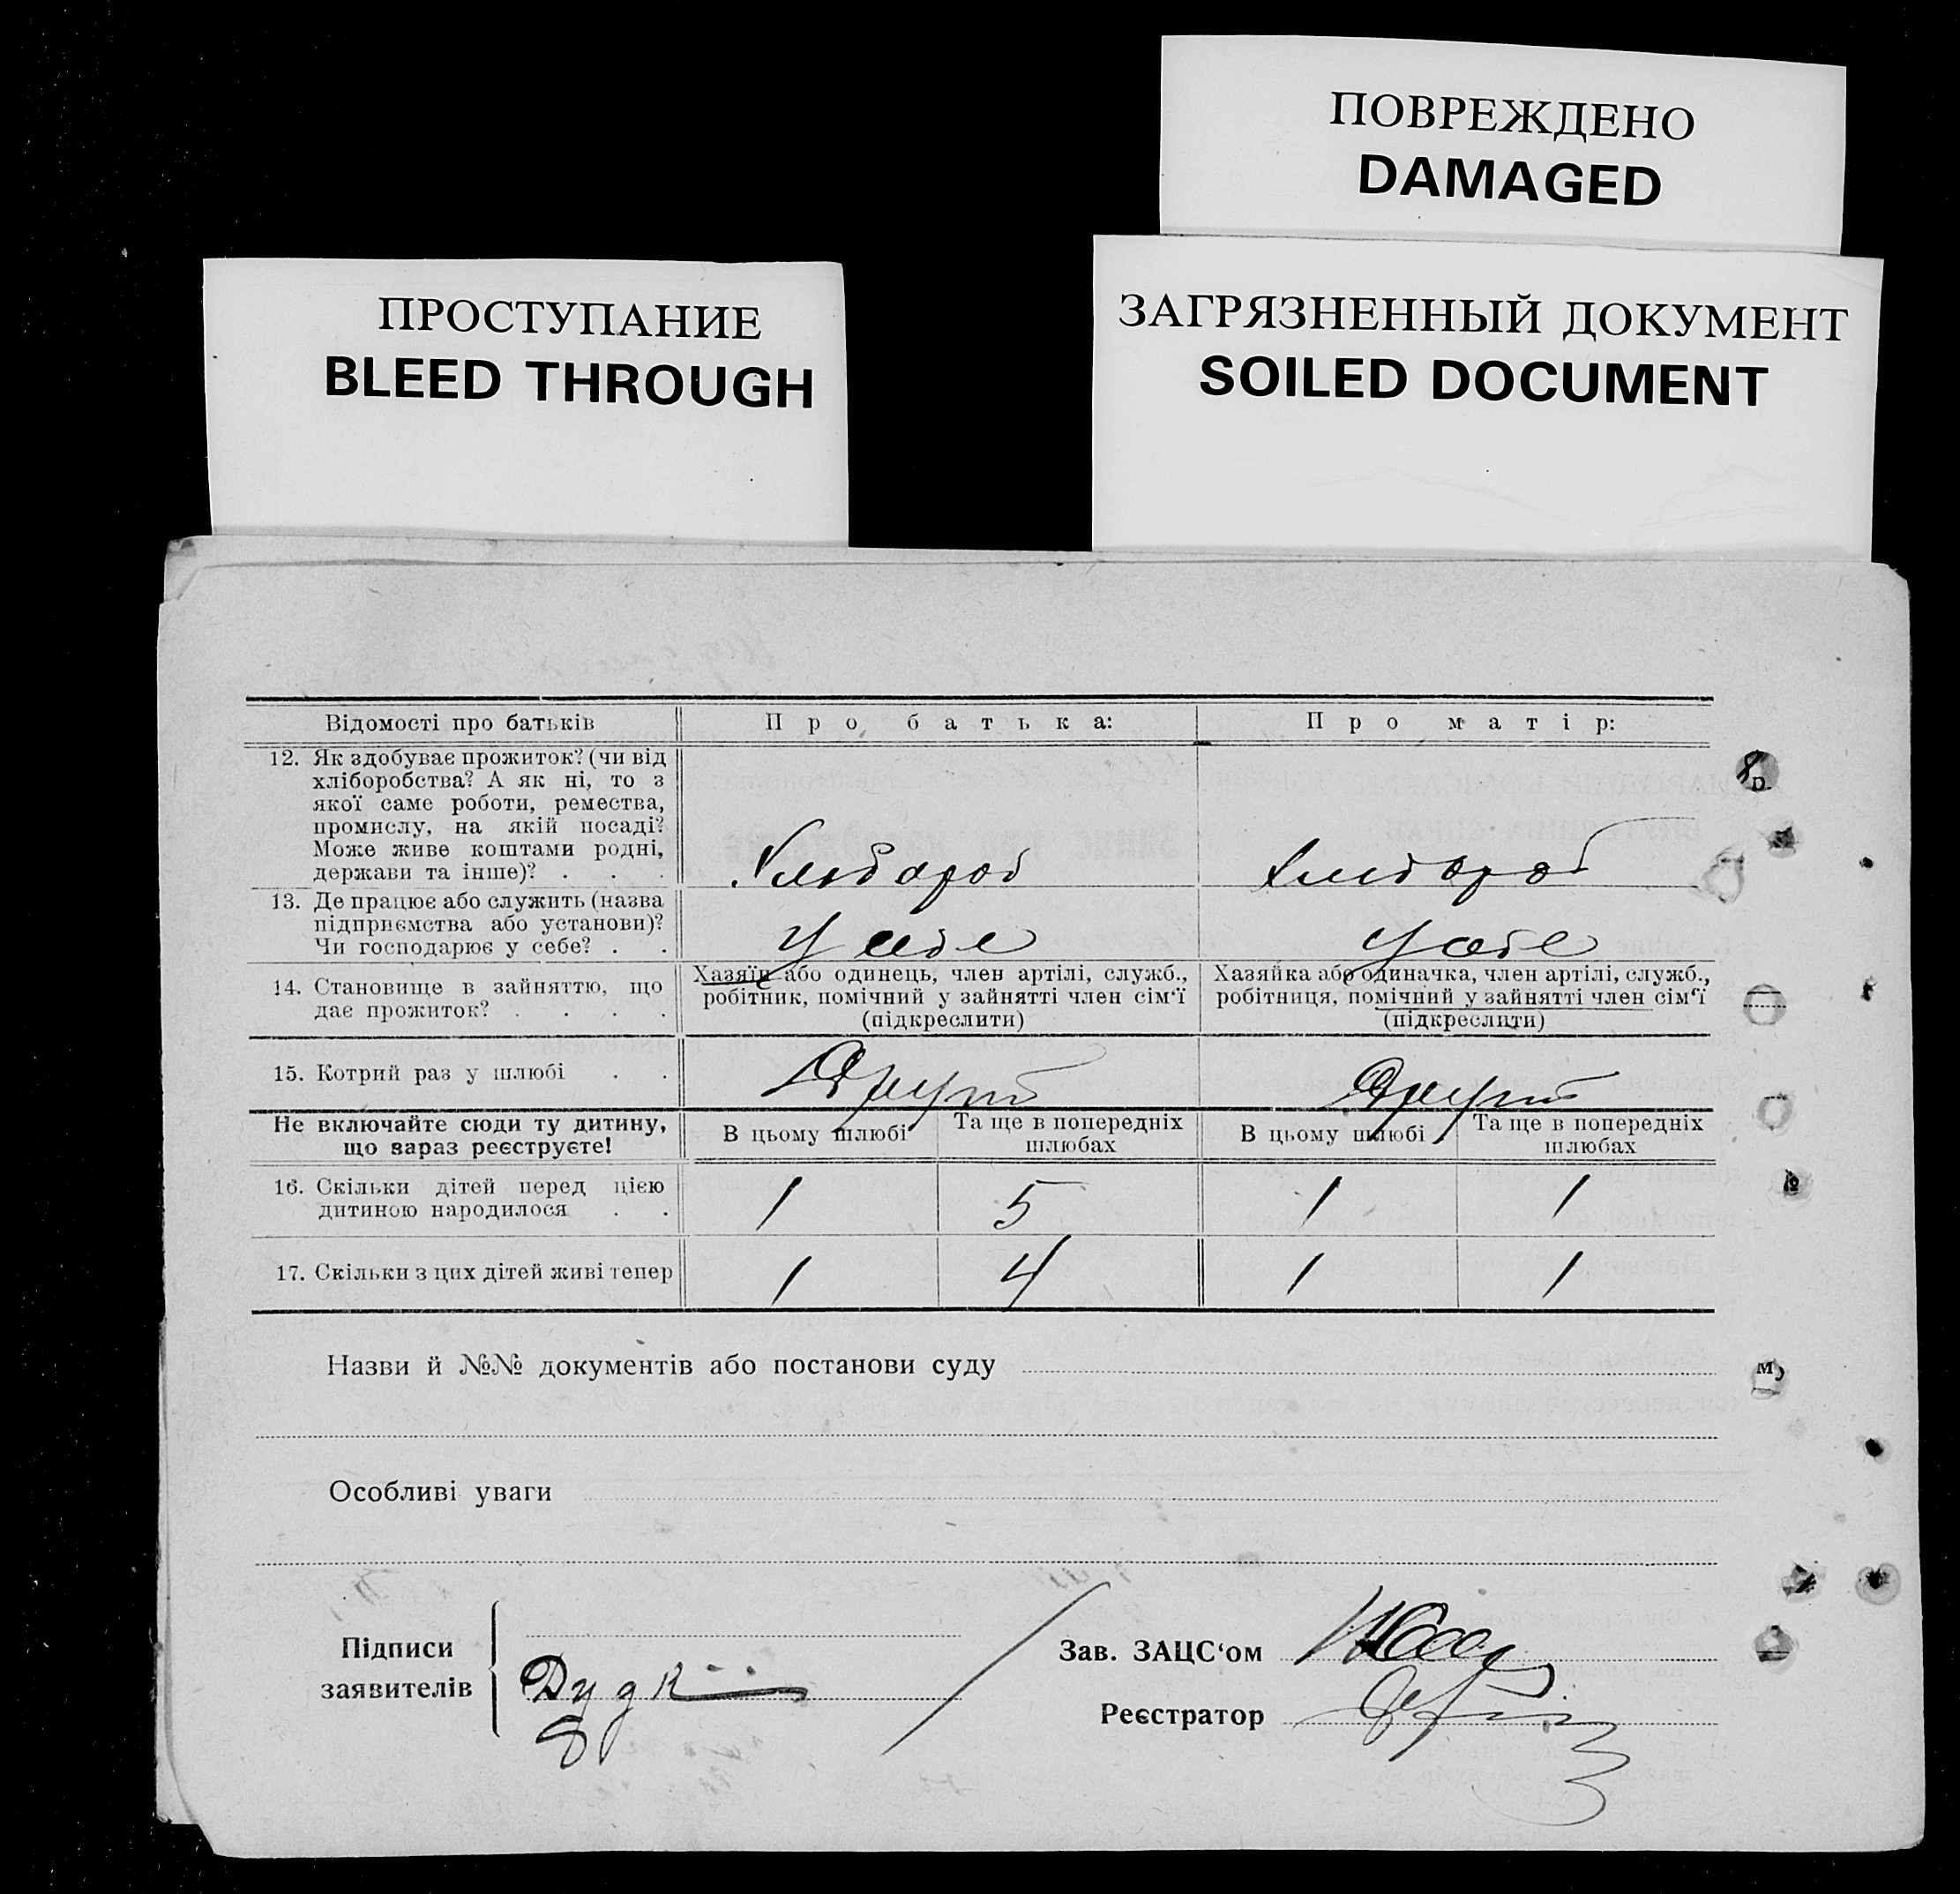 ПОВРЕЖДЕНО
DAMAGED
ПРОСТУПАНИЕ
BLEED THROUGH
ЗАГРЯЗНЕННЫЙ ДОКУМЕНТ
SOILED DOCUMENT
Відомості про батьків Про батька: Про матір:
12. Як здобуває прожиток? (чи від
хліборобства? А як ні, то з
якої саме роботи, ремества,
промислу, на якій посаді?
Може живе коштами родні,
держави та інше)? . . .
Хлібороб Хлібороб
13. Де працює або служить (назва
підприємства або установи)?
Чи господарює у себе? . .
У себе У себе
14. Становище в зайняттю, що
дає прожиток? . . . .
Хазяїн або одинець, член артілі, служб.,
робітник, помічний у зайнятті член сім'ї
(підкреслити)
Хазяйка або одиначка, член артілі, служб.,
робітниця, помічний у зайнятті член сім'ї
(підкреслити)
15. Котрий раз у шлюбі . . Другий Другий
Не включайте сюди ту дитину,
що зараз реєструєте!
В цьому шлюбі Та ще в попередніх
шлюбах
В цьому шлюбі Та ще в попередніх
шлюбах
16. Скільки дітей перед цією
дитиною народилося . .
1 5 1 1
17. Скільки з цих дітей живі тепер 1 4 1 1
Назви й №№ документів або постанови суду
Особливі уваги
Підписи
заявителів
Зав. ЗАЦС'ом
Реєстратор